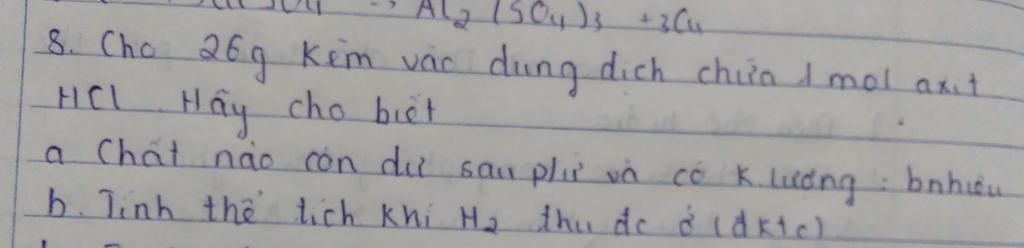 Al2 (SO4)3 +3Cu
8. Cho 26g Kẽm vào dung dịch chứa 1 mol axit
HCl. Hãy cho biết
a Chất nào còn dư sau pư và có K.lượng: bnhiêu
b. Tính thể tích khí H2 thu đc ở (đktc)